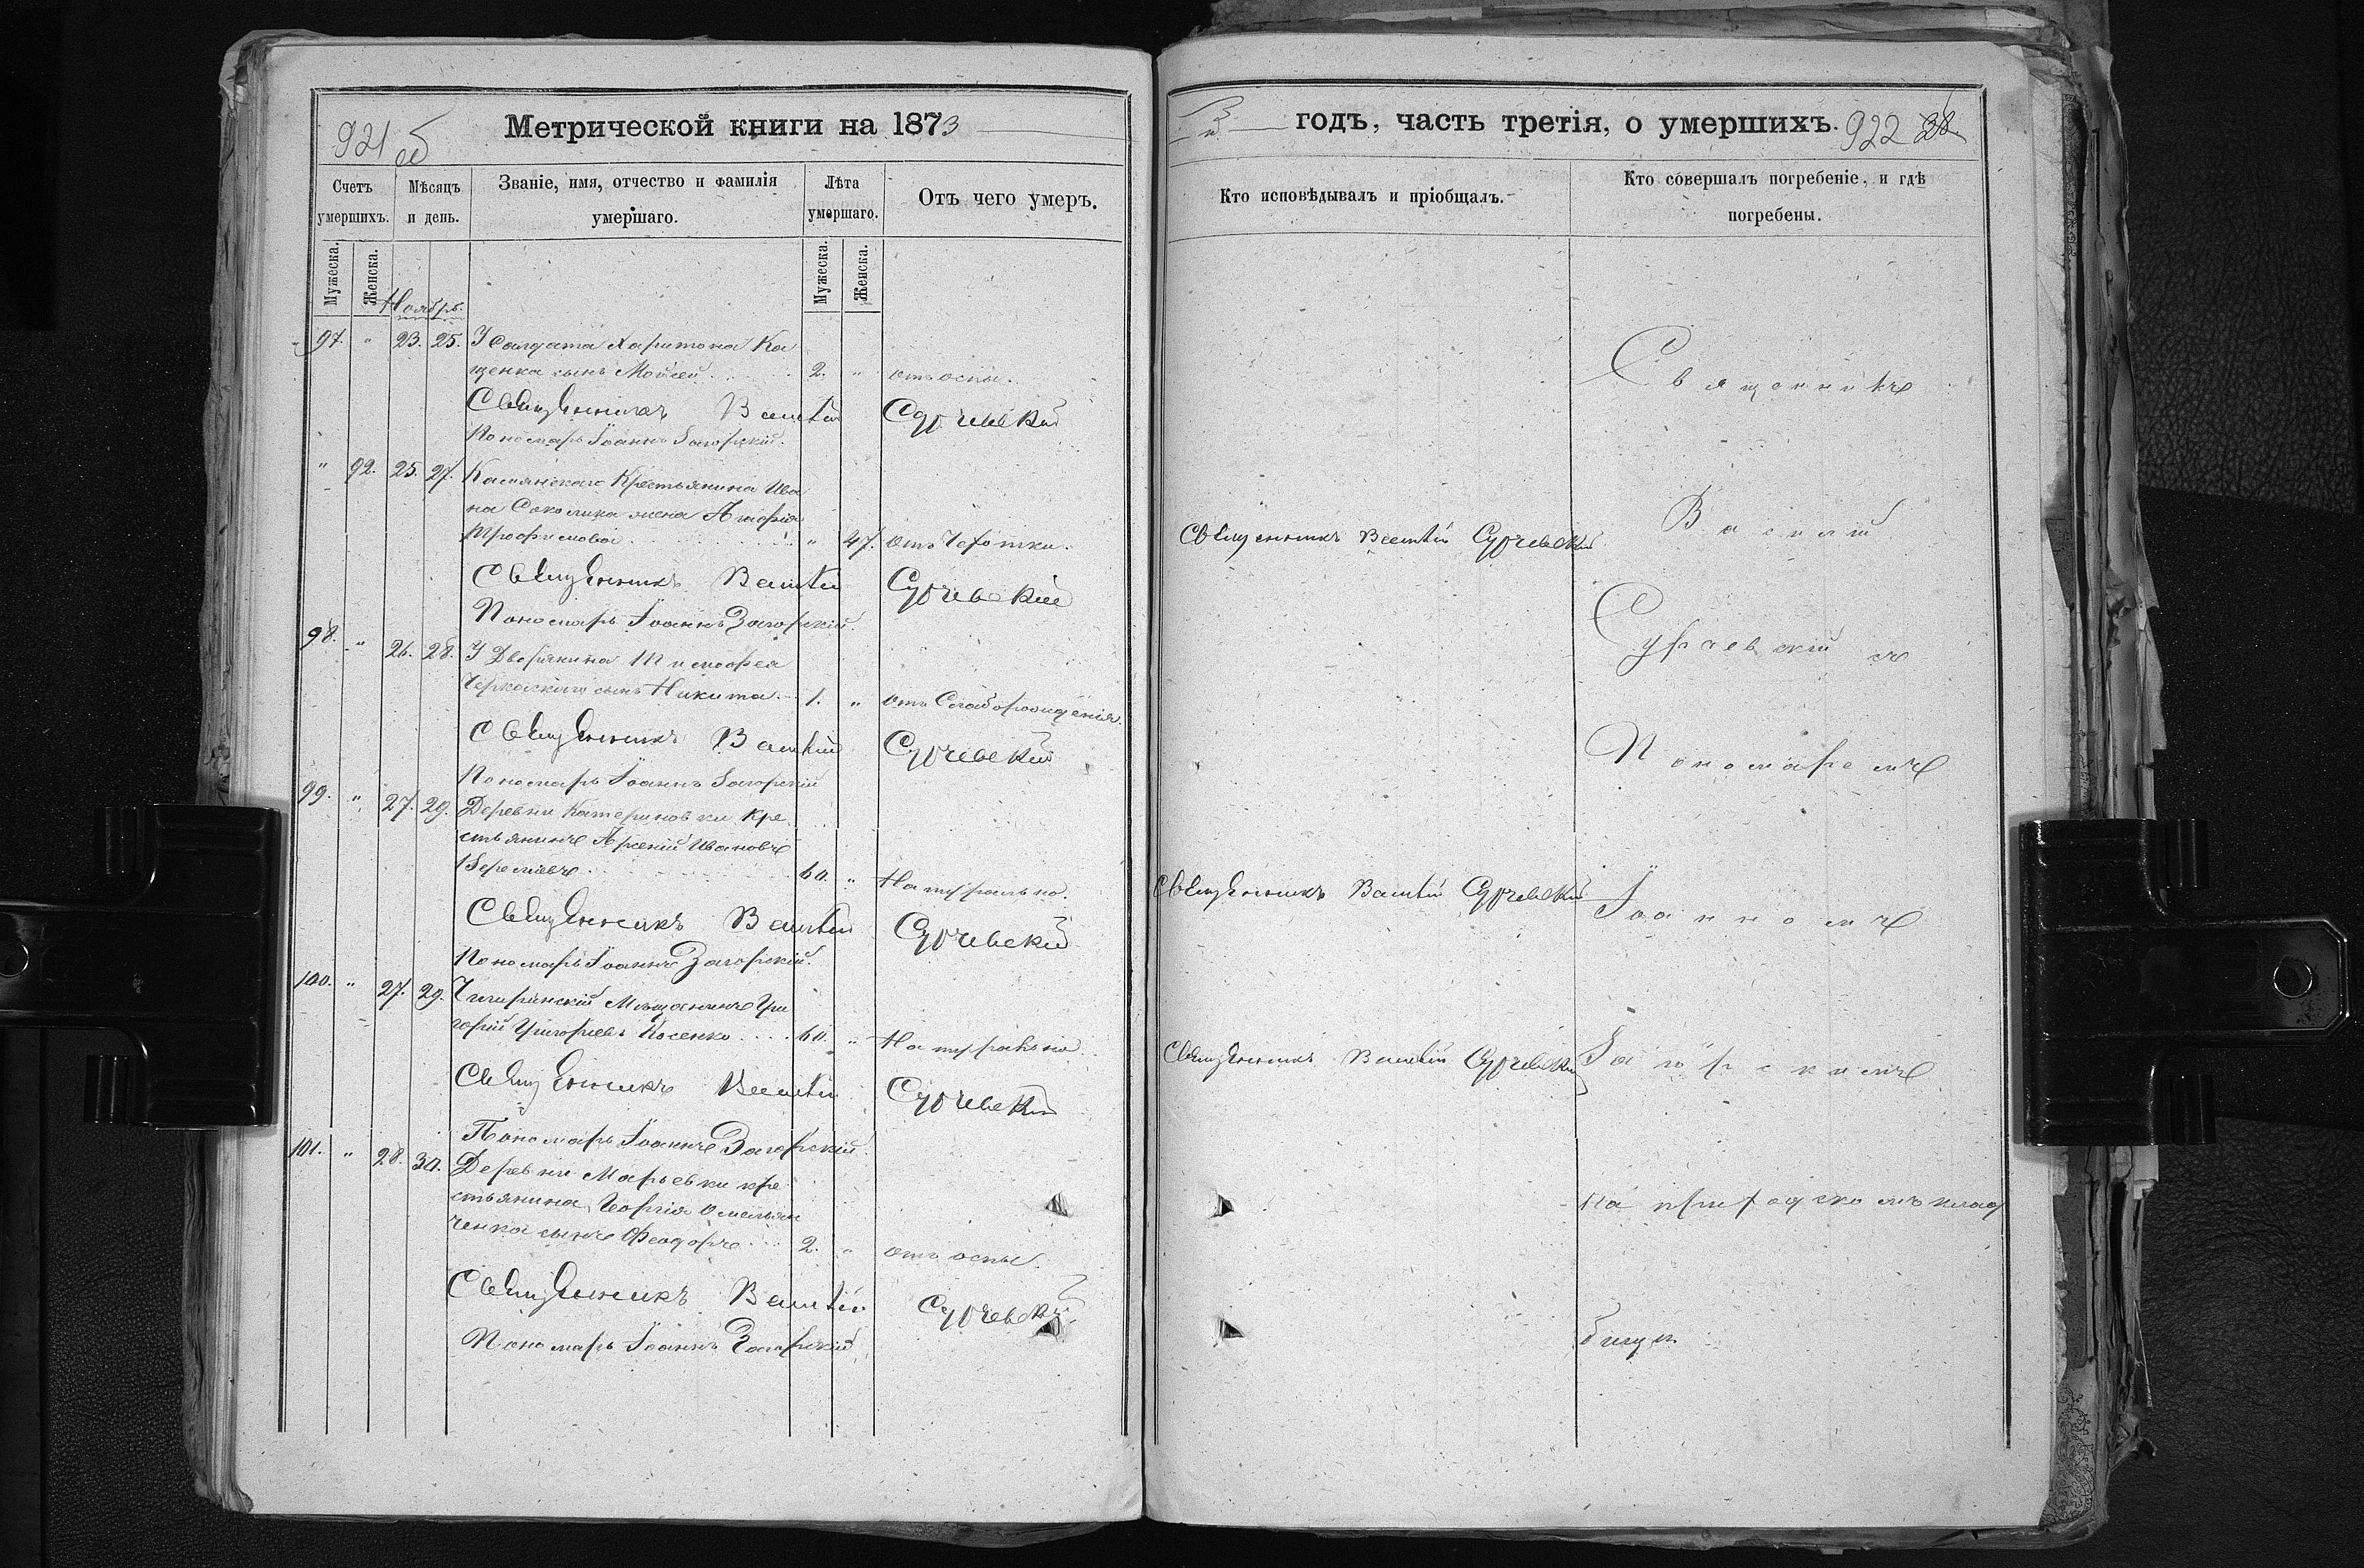 921 об
Метрической книги на 1873
Счетъ умершихъ.
Мѣсяцъ и день.
Званіе, имя, отчество и фамилія умершаго.
Лѣта умершаго.
Отъ чего умеръ.
Мужеска.
Женска.
Мужеска.
Женска.
Ноябрь.
97. " 23. 25. У Солдата Харитона Ка
щенка сынъ Мойсей 2. " отъ оспы.
Священникъ Василій Сурчевскій
Пономарь Іоаннъ Загорскій.
" 92. 25. 27. Крестьянина Ива
на Соколика жена
Трофимова " 47. отъ Чехотки.
Священникъ Василій
Пономарь Іоаннъ Загорскій.
98. " 26. 28. У Дворянина Тимофея
Черкаскаго сынъ Никита 1. " отъ Слаборожденія.
Священникъ Василій
Пономарь Іоаннъ Загорскій
99. " 27. 29. Деревни Катериновки Кре
стьянинъ Арсеній Ивановъ
60. " Натурально.
Священникъ Василій
Пономарь Іоаннъ Загорскій.
100. " 27. 29. Чигиринскій Мѣщанинъ Гри
горій Григорьевъ Косенко 60. " Натурально.
Священникъ Василій
Пономарь Іоаннъ Загорскій.
101. " 28. 30. Деревни Марьевки кре
стьянина Георгія Омельян
ченка сынъ Феодоръ 2. " отъ оспы.
Священникъ Василій
Пономарь Іоаннъ Загорскій
годъ, часть третія, о умершихъ.
922
Кто исповѣдывалъ и пріобщалъ.
Кто совершалъ погребеніе, и гдѣ погребены.
Священникъ
Священникъ Василій
Василій
съ
Пономаремъ
Священникъ Василій
Іоанномъ
Священникъ Василій
Загорскимъ
на приходскомъ клад
бищи